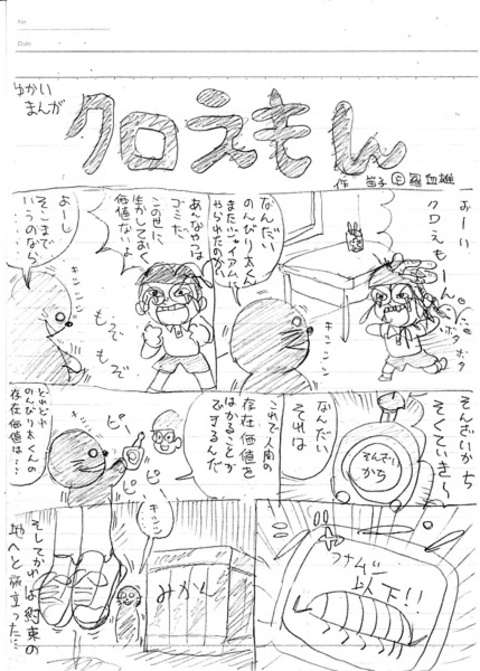 No.
Date
ゆかい
まんが
クロえもん
作
おーい
クロえもーん
ボタ
ボタ
なんだい
のんびり太くん
またジャイアムに
やられたのかい
キンニン
あんなやつは
ゴミだ
この世に
生かしておく
価値ないよ
もぞ
もぞ
よーし
そこまで
いうのなら
キンニン
そんざいかち
そくていき〜
そんざい
かち
なんだい
それは
これで人間の
存在価値を
はかることが
できるんだ
ピー
ピ
ピ
どれどれ
のんびり太くんの
存在価値は…
ピッ
フナムシ
以下!!
みかん
そしてかれは約束の
地へと旅立った…